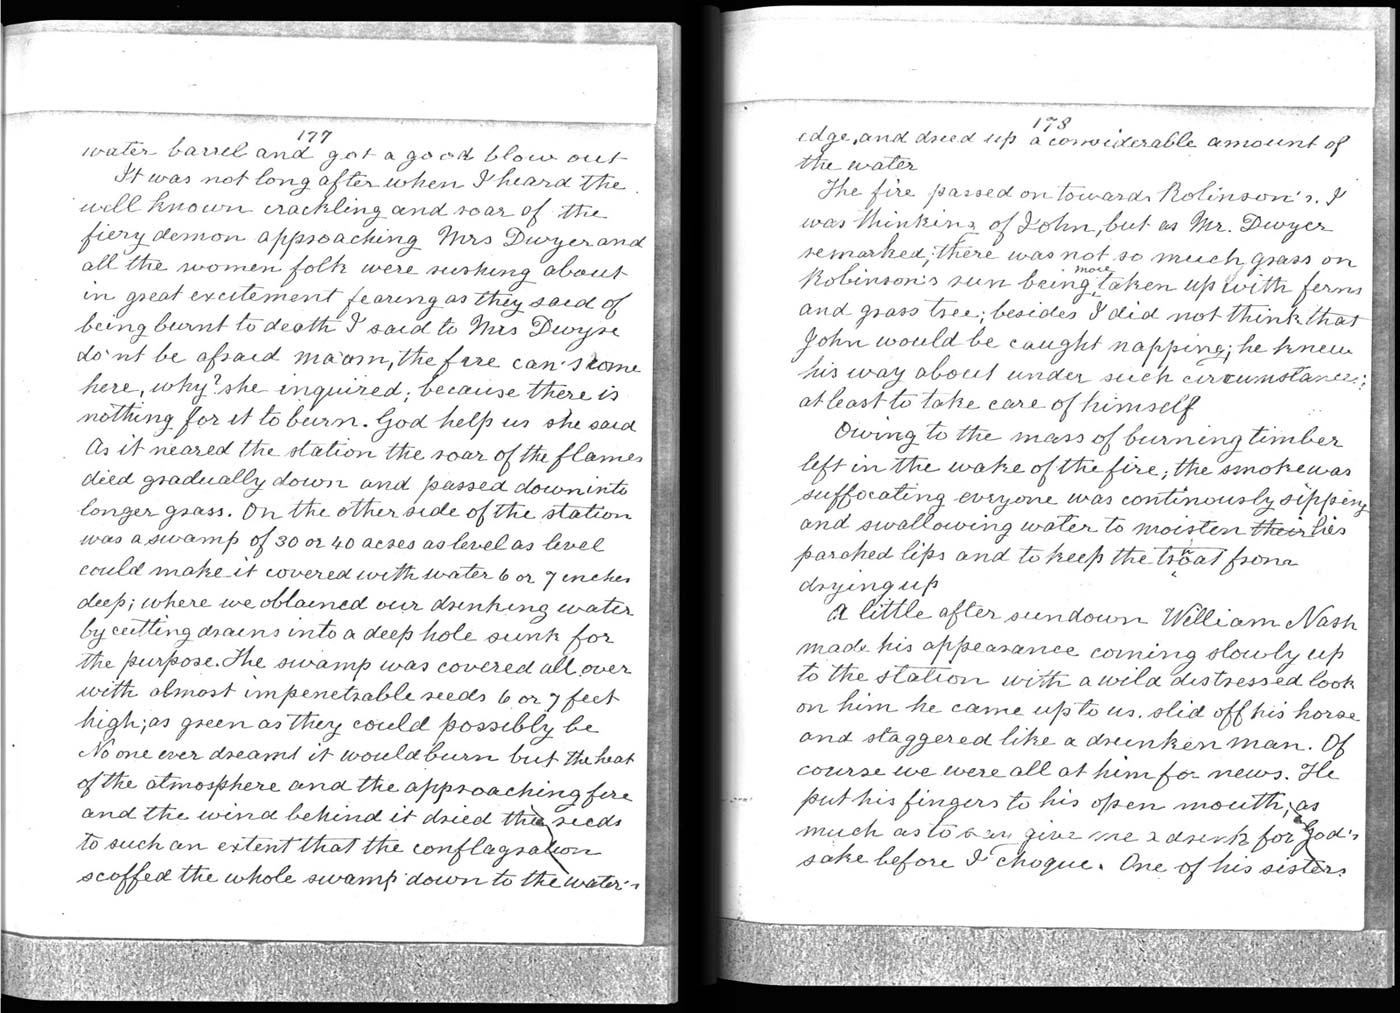 177
water barrel and got a good blow out
It was not long after when I heard the
well known crackling and roar of the
fiery demon approaching Mrs Dwyer and
all the women folk were rushing about
in great excitement fearing as they said of
being burnt to death I said to Mrs Dwyre
do'nt be afraid ma'am, the fire can't come
here, why? she inquired; because there is
nothing for it to burn. God help us she said
As it neared the station the roar of the flames
died gradually down and passed down into
longer grass. On the other side of the station
was a swamp of 30 or 40 acres as level as level
could make it covered with water 6 or 7 inches
deep; where we obtained our drinking water
by cutting drains into a deep hole sunk for
the purpose. The swamp was covered all over
with almost impenetrable reeds 6 or 7 feet
high; as green as they could possibly be
No one ever dreamt it would burn but the heat
of the atmosphere and the approaching fire
and the wind behind it dried the reeds
to such an extent that the conflagration
scoffed the whole swamp down to the water's
178
edge, and dried up a considerable amount of
the water
The fire passed on towards Robinson's. I
was thinking of John, but as Mr. Dwyer
remarked; there was not so much grass on
Robinson's run being more taken up with ferns
and grass tree; besides I did not think that
John would be caught napping; he knew
his way about under such circumstances;
at least to take care of himself
Owing to the mass of burning timber
left in the wake of the fire; the smoke was
suffocating everyone was continously sipping
and swallowing water to moisten their his
parched lips and to keep the troat from
drying up
A little after sundown William Nash
made his appearance coming slowly up
to the station with a wild distressed look
on him he came up to us. slid off his horse
and staggered like a drunken man. Of
course we were all at him for news. He
put his fingers to his open mouth; as
much as to say give me a drink for God's
sake before I choque. One of his sisters